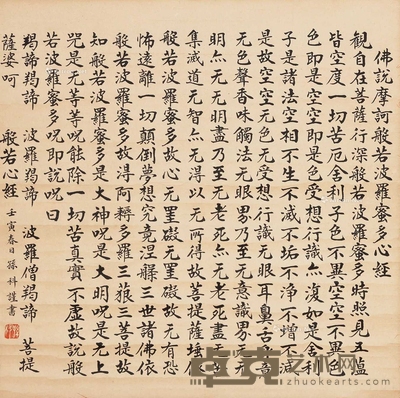 佛說摩訶般若波羅蜜多心經
觀自在菩薩行深般若波羅蜜多時照見五蘊
皆空度一切苦厄舍利子色不異空空不異色
色即是空空即是色受想行識亦復如是舍利
子是諸法空相不生不滅不垢不淨不增不減
是故空空无色无受想行識无眼耳鼻舌身意
无色聲香味觸法无眼界乃至无意識界无无
明亦无无明盡乃至无老死亦无老死盡无苦
集滅道无智亦无得以无所得故菩提薩埵依
般若波羅蜜多故心无罣礙无罣礙故无有恐
怖遠離一切顛倒夢想究竟涅槃三世諸佛依
般若波羅蜜多故得阿耨多羅三藐三菩提故
知般若波羅蜜多是大神呪是大明呪是无上
呪是无等等呪能除一切苦真實不虛故說般
若波羅蜜多呪即說呪曰
羯諦羯諦 波羅羯諦 波羅僧羯諦 菩提
薩婆呵 般若心經 壬寅春日 孫科謹書
zhuokearts.com